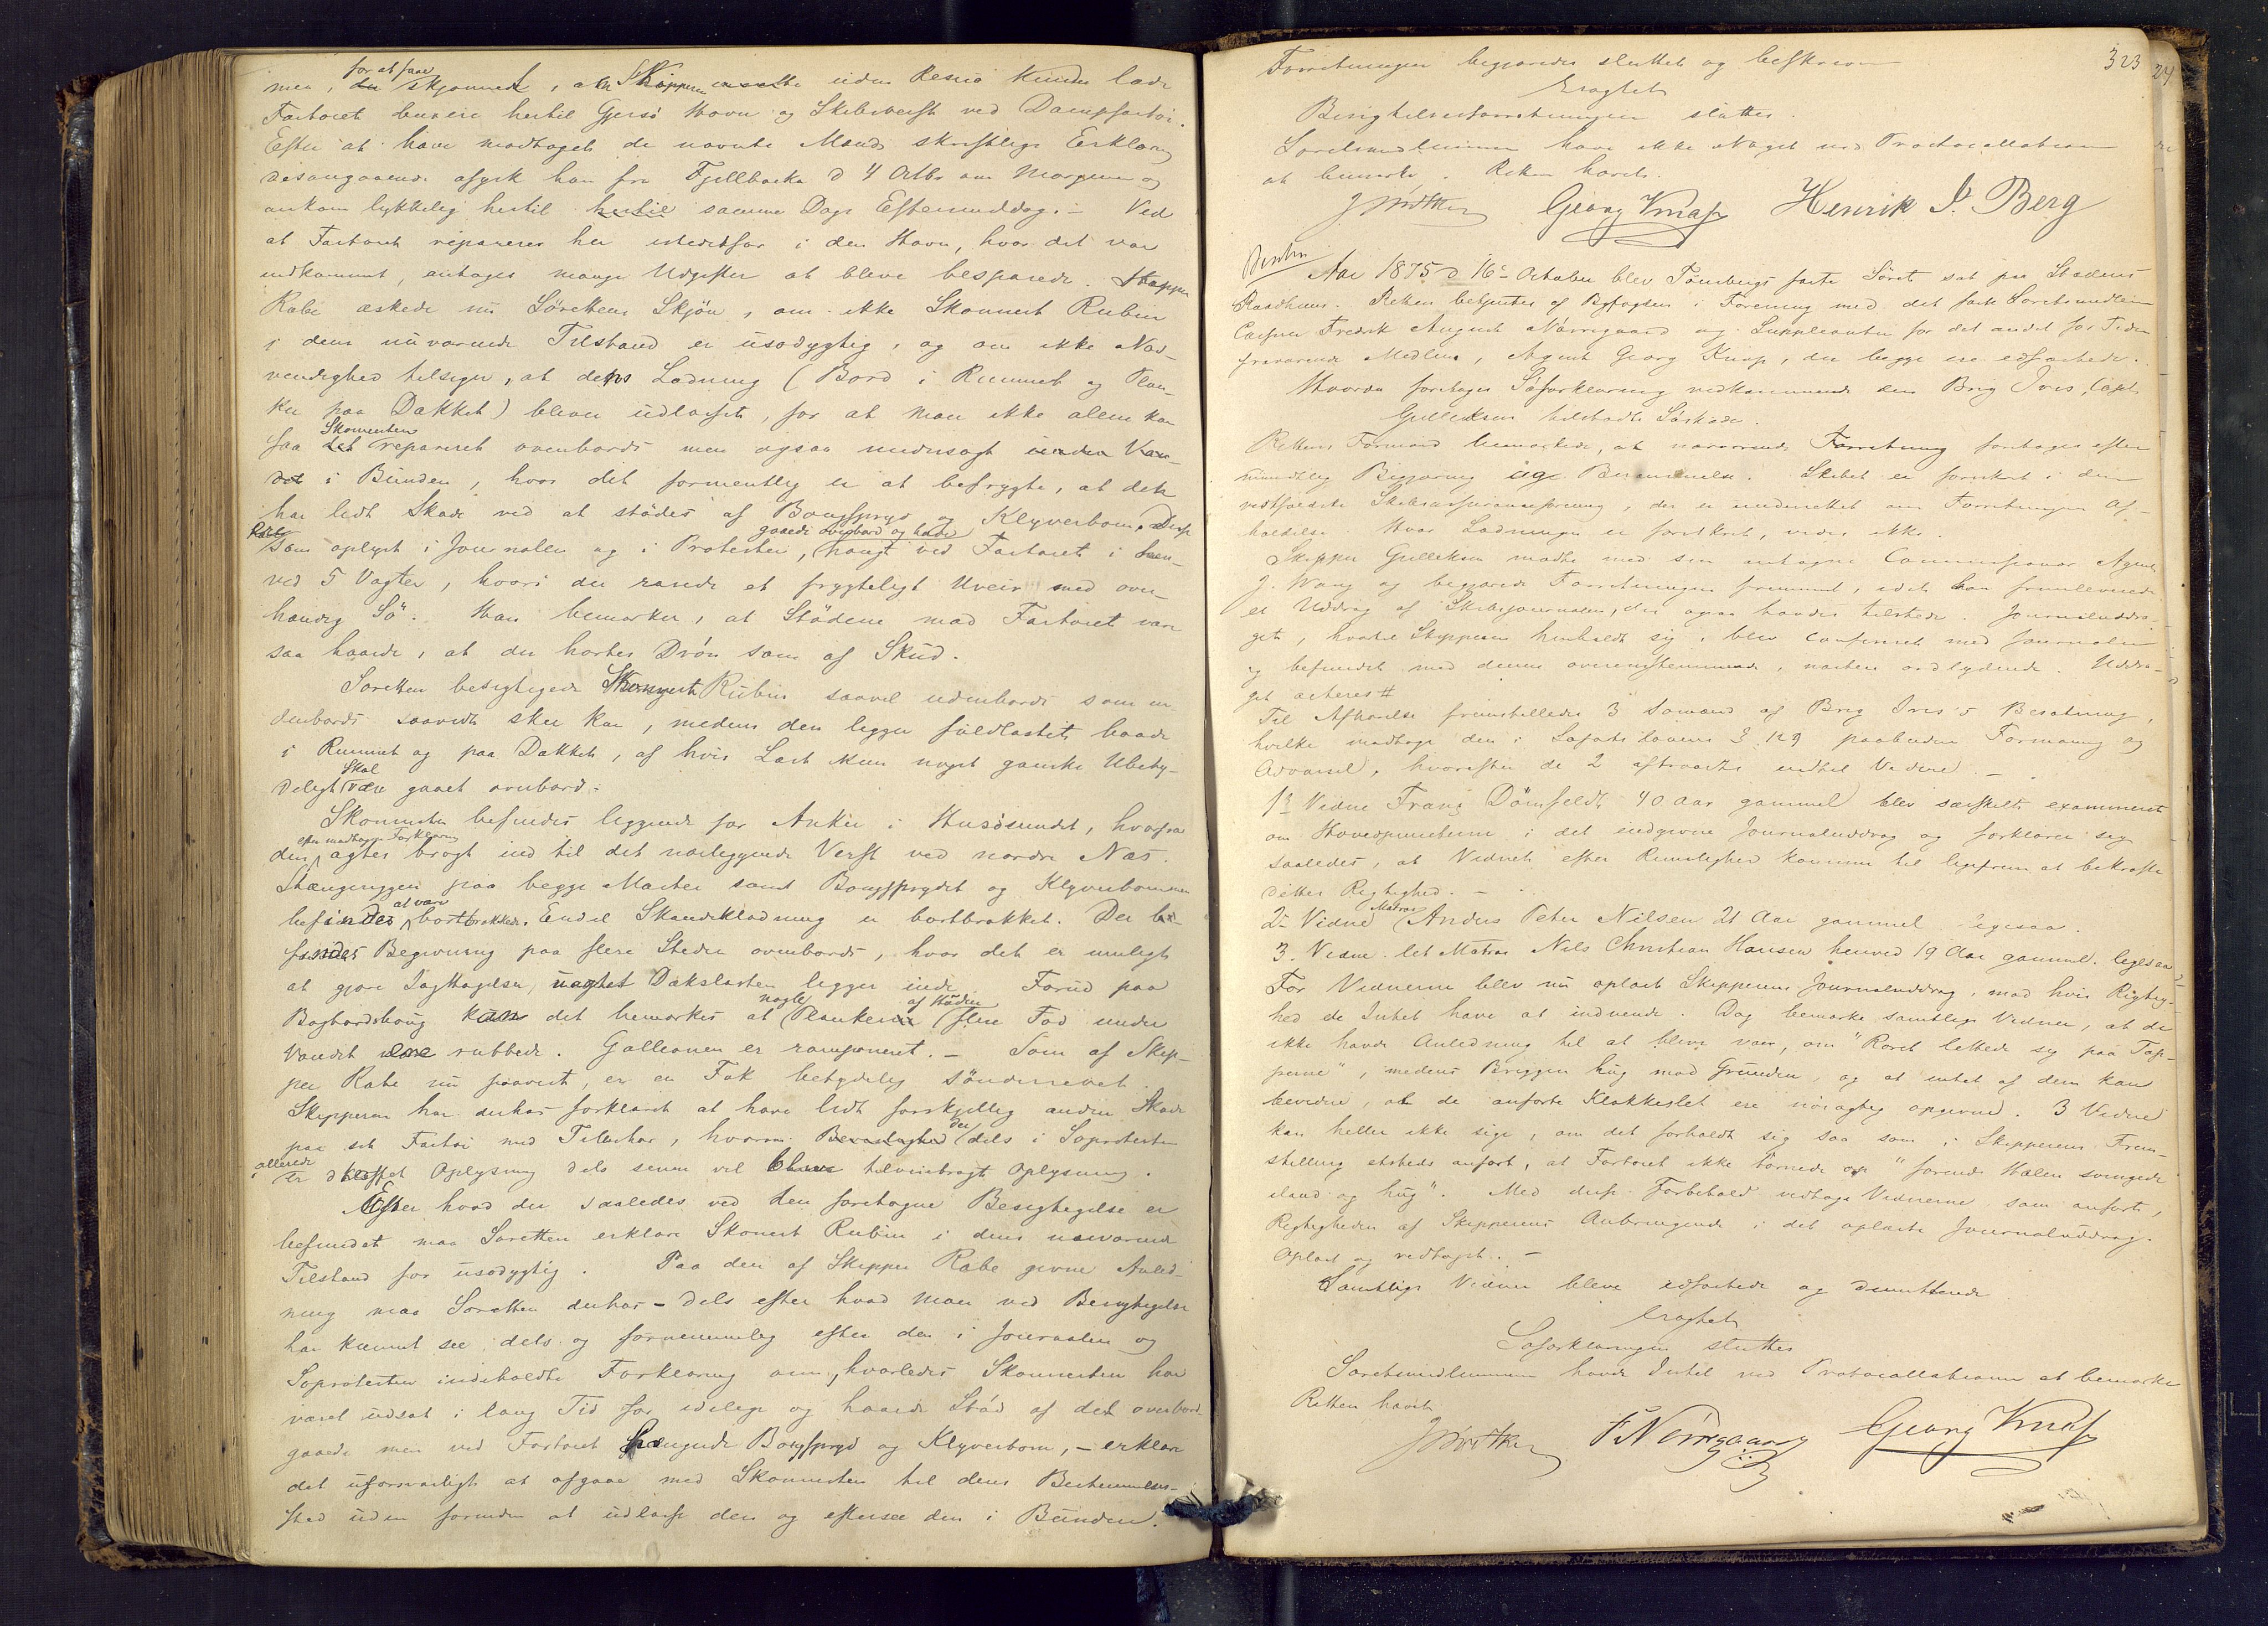 for at faae
men, skjønned, at Skipperen uden Resico kunde lade
Fartøiet bugsere hertil Gjersø Havn og Skibsverft ved Dampfartøi.
Efter at have modtaget de nævnte Mænds skriftlige Erklæring
desangaaende afgik han fra Fjellbacka d 4 Octbr om Morgenen og
ankom lykkelig hertil hertil samme Dags Eftermiddag. – Ved
at Fartøiet repareres her istedetfor i den Havn, hvor det var
indkommet, antages mange Udgifter at bleve besparede. Skipper
Rabe æskede nu Sørettens Skjøn, om ikke Skonnert Rubin
i dens nuværende Tilstand er usødygtig, og om ikke Nød-
vendighed tilsiger, at dens Ladning (Bord i Rummet og Plan-
ker paa Dækket) bliver udlosset, for at man ikke alene kan
Skonnerten
faa det repareret ovenbords men ogsaa undersøgt under Van-
det i Bunden, hvor det formentlig er at befrygte, at den
har lidt Skade ved at stødes af Bougspryd og Klyverbom. Disse
gaaede overbord og havde
Rabe som oplyst i Journalen og i Protesten, hængt ved Fartøiet i hen-
ved 5 Vagter, hvori der rasede et frygteligt Uveir med over-
hændig Sø. Han bemærker, at Stødene mod Fartøiet vare
saa haarde, at der hørtes Drøn som af Skud.
Søretten besigtigede Skonnert Rubin saavel udenbords som in-
denbords saavidt skee kan, medens den ligger fuldlastet baade
i Rummet og paa Dækket, af hvis Last kun noget ganske Ubety-
skal
deligt være gaaet overbord.
Skonnerten befindes liggende for Anker i Husøsundet, hvorfra
efter modtagen Forklaring
den agtes bragt ind til det nærliggende Verft ved nordre Næs.
Stængerygen paa begge Master samt Bougsprydet og Klyverbommen
at være
befindes bortbrækkede. Endel Skandseklædning er bortbrækket. Der be-
findes Begivning paa flere Steder ovenbords, hvor det er muligt
at gjøre Iagttagelser, uagtet Dækslasten ligger inde. Forud paa
nogle af Høiden
Bagbordsboug kan det bemærkes at Plankerne flere Fod under
Vandet ere rubbede. Gallionen er ramponeret. – Som af Skip-
per Rabe nu paavist, er en Fok betydelig sønderrevet.
Skipperen har derhos forklaret at have lidt forskjellig anden Skade
der
paa sit Fartøi med Tilbehør, hvorom dels i Søprotesten
allerede
er skaffet Oplysning dels senere vil blive tilveiebragt Oplysning.
Efter hvad der saaledes ved den foretagne Besigtigelse er
befundet maa Søretten erklære Skonert Rubin i dens nuværende
Tilstand for usødygtig. Paa den af Skipper Rabe givne Anled-
ning maa Søretten derhos – dels efter hvad man ved Besigtigelsen
har kunnet see dels og fornemmelig efter den i Journalen og
Søprotesten indeholdte Forklaring om, hvorledes Skonnerten har
været udsat i lang Tid for idelige og haarde Stød af det overbord-
gaaede men ved Fartøiet hængende Bougspryd og Klyverbom, – erklære
det uforsvarligt at afgaae med Skonnerten til dens Bestemmelses-
sted uden forinden at udlosse den og eftersee den i Bunden.
323
24
Forretningen begjæredes sluttet og beskreven
Eragtet
Besigtelsesforretningen sluttes.
Søretsmedlemmerne have ikke Noget ved Protocollationen
at bemærke. Retten hævet.
Georg Knap Henrik J. Berg
Aar 1875 d 16de October blev Tønsbergs faste Søret sat paa Stadens
Raadhuus. Retten betjentes af Byfogden i Forening med det faste Søretsmedlem
Capitain Fredrik August Nørregaard og Suppleanten for det andet for Tiden
fraværende Medlem, Agent Georg Knap, der begge ere edfæstede.
Hvorda foretoges Søforklaring vedkommende den Brig Iris, Capt.
Gulliksen tilstødte Søskade.
Rettens Formand bemærkede, at nærværende Forretning foretages efter
mundtlig Begjæring og Berammelse. Skibet er forsikret i den
vestfoldske Skibsassuranceforening, der er underrettet om Forretningens Af-
holdelse. Hvor Ladningen er forsikret, vides ikke.
Skipper Gulliksen mødte med sin antagne Commissionær Agent
J. Wang og begjærede Forretningen fremmet, idet han fremleverede
et Uddrag af Skibsjournalen, der ogsaa havdes tilstede. Journaluddra-
get, hvortil Skipperen henholdt sig, blev confereret med Journalen
og befundet med denne overensstemmende, næsten ordlydende. Uddra-
get acteres #
Til Afhørelse fremstilledes 3 Sømænd af Brig Iris's Besætning,
hvilke modtoge den i Søfartslovens § 129 paabudne Formaning og
Advarsel, hvorefter de 2 aftraadte indtil Videre. –
1ste Vidne Franz Dömfeldt 40 Aar gammel blev særskilt examineret
om Hovedpuncterne i det indgivne Journaluddrag og forklarer sig
saaledes, at Vidnet efter Rimelighed kommer til ligefrem at bekræfte
dettes Rigtighed. –
Matros
2det Vidne Anders Peter Nilsen 21 Aar gammel ligesaa.
3. Vidne let Matros Nils Christian Hansen henved 19 Aar gammel. ligesaa
For Vidnerne blev nu oplæst Skipperens Journaluddrag, mod hvis Rigtig-
hed de Intet have at indvende. Dog bemærke samtlige Vidner, at de
ikke havde Anledning til at blive vaer, om "Roret lettede sig paa Tap-
perne", medens Briggen hug mod Grunden, og at intet af dem kan
bevidne, at de anførte Klokkeslet ere nøiagtig opgivne. 3 Vidne
kan heller ikke sige, om det forholdt sig saa som i Skipperens Frem-
stilling etsteds anført, at Fartøiet ikke tørnede op "førend Hælen svingede
iland og hug". Med disse Forbehold vedtoge Vidnerne, som anført,
Rigtigheden af Skipperens Anbringende i det oplæste Journaluddrag.
Oplæst og vedtaget. –
Samtlige Vidner bleve edfæstede og dimitterede
Eragtet
Søforklaringen sluttes
Søretsmedlemmerne havde Intet ved Protocollationen at bemærke
Retten hævet
F Nørregaard Georg Knap